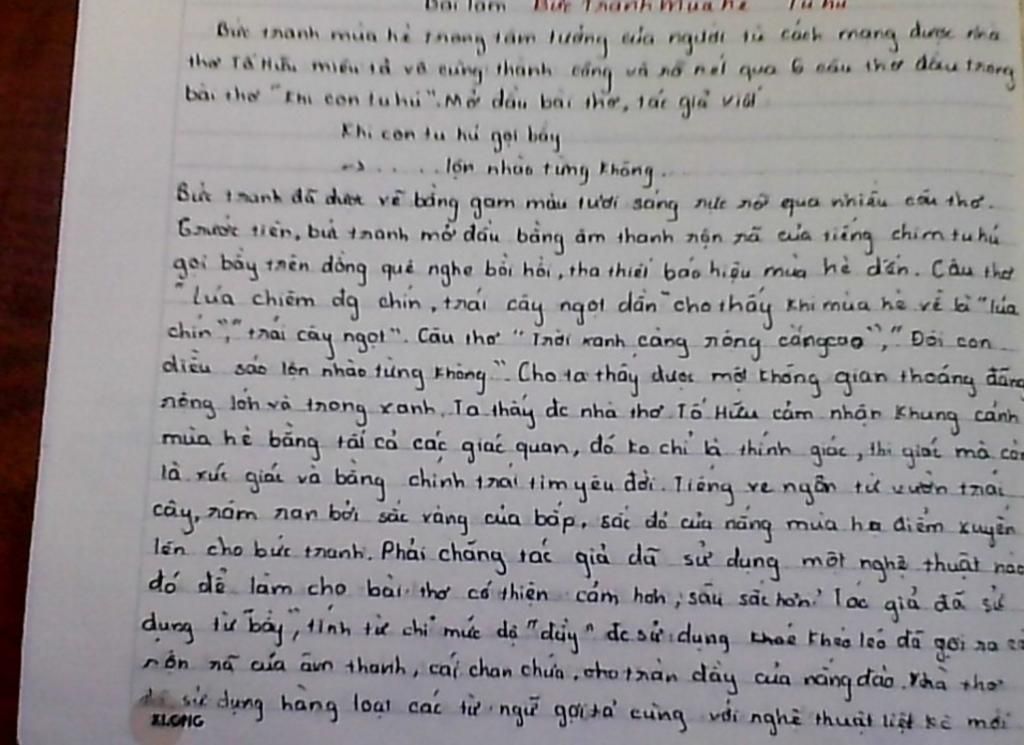 Bài làm Bức tranh mùa hè Tu hú
Bức tranh mùa hè trong tâm tưởng của người tù cách mạng được nhà
thơ Tố Hữu miêu tả vô cùng thành công và rõ nét qua 6 câu thơ đầu trong
bài thơ "Khi con tu hú". Mở đầu bài thơ, tác giả viết
Khi con tu hú gọi bầy
-> ...... lộn nhào từng không.
Bức tranh đã được vẽ bằng gam màu tươi sáng rực rỡ qua nhiều câu thơ.
Trước tiên, bức tranh mở đầu bằng âm thanh rộn rã của tiếng chim tu hú
gọi bầy trên đồng quê nghe bồi hồi, tha thiết báo hiệu mùa hè đến. Câu thơ
"Lúa chiêm đg chín, trái cây ngọt dần" cho thấy khi mùa hè về là "lúa
chín", "trái cây ngọt". Câu thơ "Trời xanh càng rộng càng cao", "Đôi con
diều sáo lộn nhào từng không". Cho ta thấy được một không gian thoáng đãng
rộng lớn và trong xanh. Ta thấy đc nhà thơ Tố Hữu cảm nhận khung cảnh
mùa hè bằng tất cả các giác quan, đó ko chỉ là thính giác, thị giác mà còn
là xúc giác và bằng chính trái tim yêu đời. Tiếng ve ngân từ vườn trái
cây, râm ran bởi sắc vàng của bắp, sắc đỏ của nắng mùa hạ điểm xuyến
lên cho bức tranh. Phải chăng tác giả đã sử dụng một nghệ thuật nào
đó để làm cho bài thơ có thiện cảm hơn, sâu sắc hơn? Tác giả đã sử
dụng từ "bầy", tính từ chỉ mức độ "đầy" đc sử dụng khoé khéo léo đã gợi ra
rộn rã của âm thanh, cái chan chứa, cho tràn đầy của nắng đào. Nhà thơ
đã sử dụng hàng loạt các từ ngữ gợi tả cùng với nghệ thuật liệt kê mới
XLONG